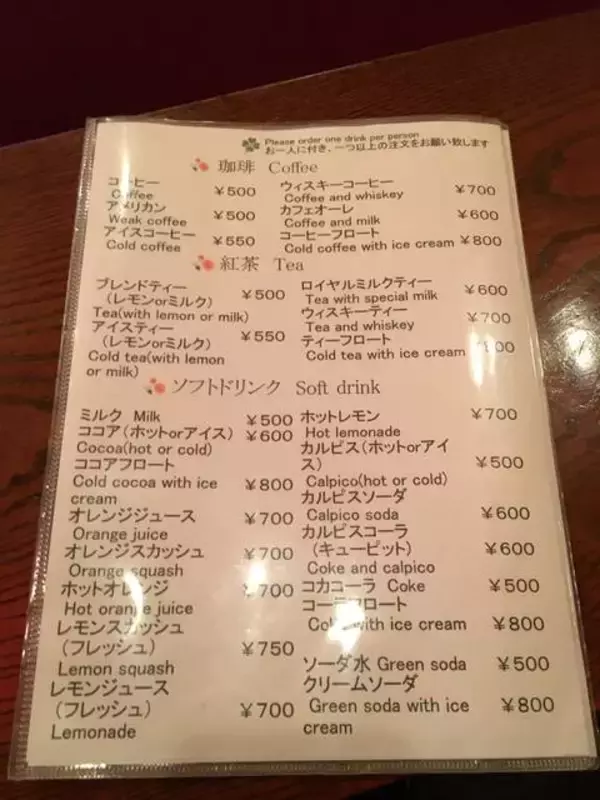 Please order one drink per person
お一人に付き、一つ以上の注文をお願い致します
珈琲 Coffee
コーヒー
Coffee ¥500
アメリカン
Weak coffee ¥500
アイスコーヒー
Cold coffee ¥550
ウィスキーコーヒー
Coffee and whiskey ¥700
カフェオーレ
Coffee and milk ¥600
コーヒーフロート
Cold coffee with ice cream ¥800
紅茶 Tea
ブレンドティー
(レモンorミルク) ¥500
Tea(with lemon or milk)
アイスティー
(レモンorミルク) ¥550
Cold tea(with lemon
or milk)
ロイヤルミルクティー
Tea with special milk ¥600
ウィスキーティー
Tea and whiskey ¥700
ティーフロート
Cold tea with ice cream ¥800
ソフトドリンク Soft drink
ミルク Milk ¥500
ココア(ホットorアイス) ¥600
Cocoa(hot or cold)
ココアフロート
Cold cocoa with ice ¥800
cream
オレンジジュース ¥700
Orange juice
オレンジスカッシュ ¥700
Orange squash
ホットオレンジ ¥700
Hot orange juice
レモンスカッシュ
(フレッシュ) ¥750
Lemon squash
レモンジュース
(フレッシュ) ¥700
Lemonade
ホットレモン ¥700
Hot lemonade
カルピス(ホットorアイ
ス) ¥500
Calpico(hot or cold)
カルピスソーダ
Calpico soda ¥600
カルピスコーラ
(キューピット) ¥600
Coke and calpico
コカコーラ Coke ¥500
コーラフロート
with ice cream ¥800
ソーダ水 Green soda ¥500
クリームソーダ
Green soda with ice ¥800
cream